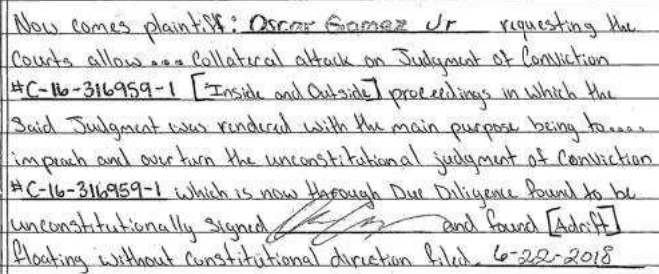 Now comes plaintiff: Oscar Gomez Jr requesting the
Courts allow ... Collateral attack on Judgment of Conviction
#C-16-316959-1 [Inside and Outside] proceedings in which the
Said Judgment was rendered with the main purpose being to....
impeach and overturn the unconstitutional judgment of Conviction
#C-16-316959-1 which is now through Due Diligence found to be
unconstitutionally signed and found [Adrift]
floating without constitutional direction filed. 6-22-2018